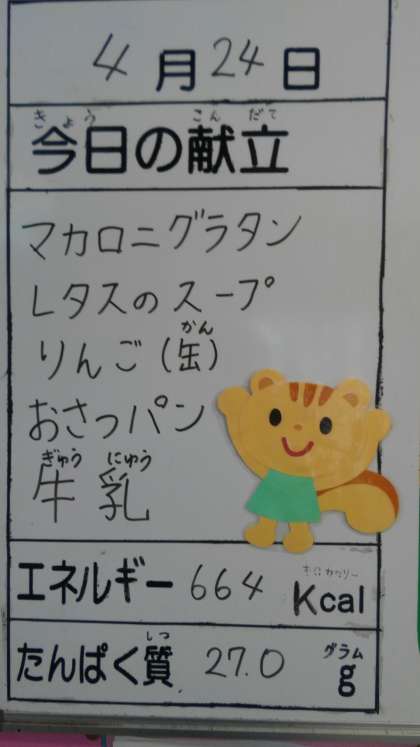 4月24日
きょう こんだて
今日の献立
マカロニグラタン
レタスのスープ
かん
りんご(缶)
おさつパン
ぎゅうにゅう
牛乳
キロカロリー
エネルギー 664 Kcal
しつ グラム
たんぱく質 27.0 g